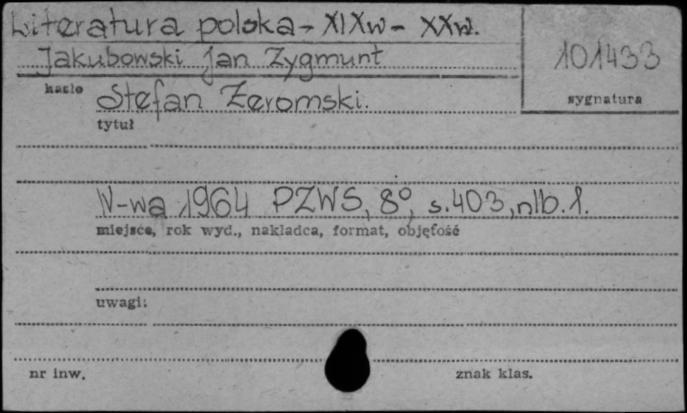 Literatura polska - XIXw - XXw.
Jakubowski Jan Zygmunt
101433
hasło
sygnatura
Stefan Żeromski.
tytuł
W-wa 1964 PZWS, 8°, s.403, nlb.1.
miejsce, rok wyd., nakładca, format, objętość
uwagi:
nr inw.
znak klas.